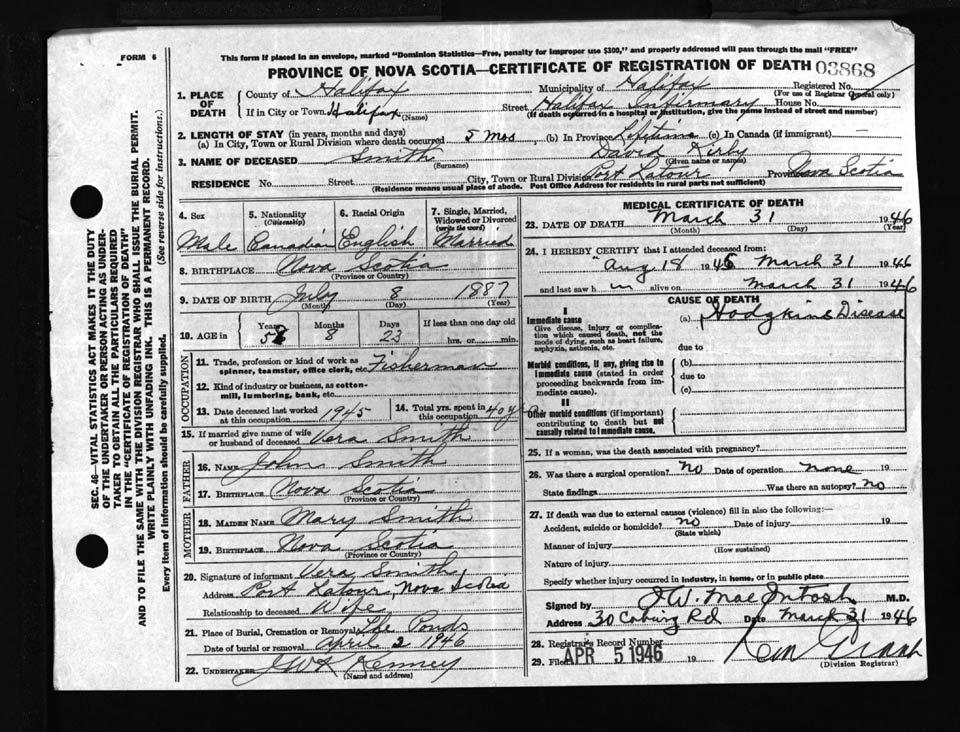 FORM 6
This form if placed in an envelope, marked "Dominion Statistics—Free, penalty for improper use $300," and properly addressed will pass through the mail "FREE"
PROVINCE OF NOVA SCOTIA—CERTIFICATE OF REGISTRATION OF DEATH 03868
SEC. 46—VITAL STATISTICS ACT MAKES IT THE DUTY
OF THE UNDERTAKER OR PERSON ACTING AS UNDER-
TAKER TO OBTAIN ALL THE PARTICULARS REQUIRED
IN THE "CERTIFICATE OF REGISTRATION OF DEATH"
AND TO FILE THE SAME WITH THE DIVISION REGISTRAR WHO SHALL ISSUE THE BURIAL PERMIT.
WRITE PLAINLY WITH UNFADING INK. THIS IS A PERMANENT RECORD.
Every item of information should be carefully supplied. (See reverse side for instructions.)
1. PLACE OF DEATH County of Halifax Municipality of Halifax Registered No.
(For use of Registrar General only)
If in City or Town Halifax Street Halifax Infirmary House No.
(Name) (If death occurred in a hospital or institution, give the name instead of street and number)
2. LENGTH OF STAY (in years, months and days)
(a) In City, Town or Rural Division where death occurred 5 mos, (b) In Province Lifetime (c) In Canada (if immigrant) —
3. NAME OF DECEASED Smith David Kirby
(Surname) (Given name or names)
RESIDENCE No. Street City, Town or Rural Division Port Latour Province Nova Scotia
(Residence means usual place of abode. Post Office Address for residents in rural parts not sufficient)
4. Sex 5. Nationality (Citizenship) 6. Racial Origin 7. Single, Married, Widowed or Divorced (write the word)
Male Canadian English Married
8. BIRTHPLACE Nova Scotia
(Province or Country)
9. DATE OF BIRTH July 8 1887
(Month) (Day) (Year)
10. AGE in Years Months Days If less than one day old
58 8 23 hrs. or min.
OCCUPATION
11. Trade, profession or kind of work as spinner, teamster, office clerk, etc. Fisherman
12. Kind of industry or business, as cotton-mill, lumbering, bank, etc.
13. Date deceased last worked at this occupation 1945 14. Total yrs. spent in this occupation 40 y
15. If married give name of wife or husband of deceased Vera Smith
FATHER
16. NAME John Smith
17. BIRTHPLACE Nova Scotia
(Province or Country)
MOTHER
18. MAIDEN NAME Mary Smith
19. BIRTHPLACE Nova Scotia
(Province or Country)
20. Signature of informant Vera Smith
Address Port Latour, Nova Scotia
Relationship to deceased Wife
21. Place of Burial, Cremation or Removal The Ponds
Date of burial or removal April 2 1946
22. UNDERTAKER Kenney
(Name and address)
MEDICAL CERTIFICATE OF DEATH
23. DATE OF DEATH March 31 1946
(Month) (Day) (Year)
24. I HEREBY CERTIFY that I attended deceased from:
Aug 18 1945 March 31 1946
and last saw h im alive on March 31 1946
CAUSE OF DEATH
I
Immediate cause (a) Hodgkins Disease
Give disease, injury or complica-
tion which caused death, not the
mode of dying, such as heart failure,
asphyxia, asthenia, etc. due to
Morbid conditions, if any, giving rise to (b)
immediate cause (stated in order due to
proceeding backwards from im-
mediate cause). (c)
II
Other morbid conditions (if important)
contributing to death but not
causally related to immediate cause.
25. If a woman, was the death associated with pregnancy?
26. Was there a surgical operation? No Date of operation none 19
State findings Was there an autopsy? No
27. If death was due to external causes (violence) fill in also the following:—
Accident, suicide or homicide? no Date of injury 19
(State which)
Manner of injury
(How sustained)
Nature of injury
Specify whether injury occurred in industry, in home, or in public place
Signed by J W. MacIntosh M.D.
Address 30 Coburg Rd Date March 31 1946
28. Registrar's Record Number
29. Filed APR 5 1946 19
(Division Registrar)